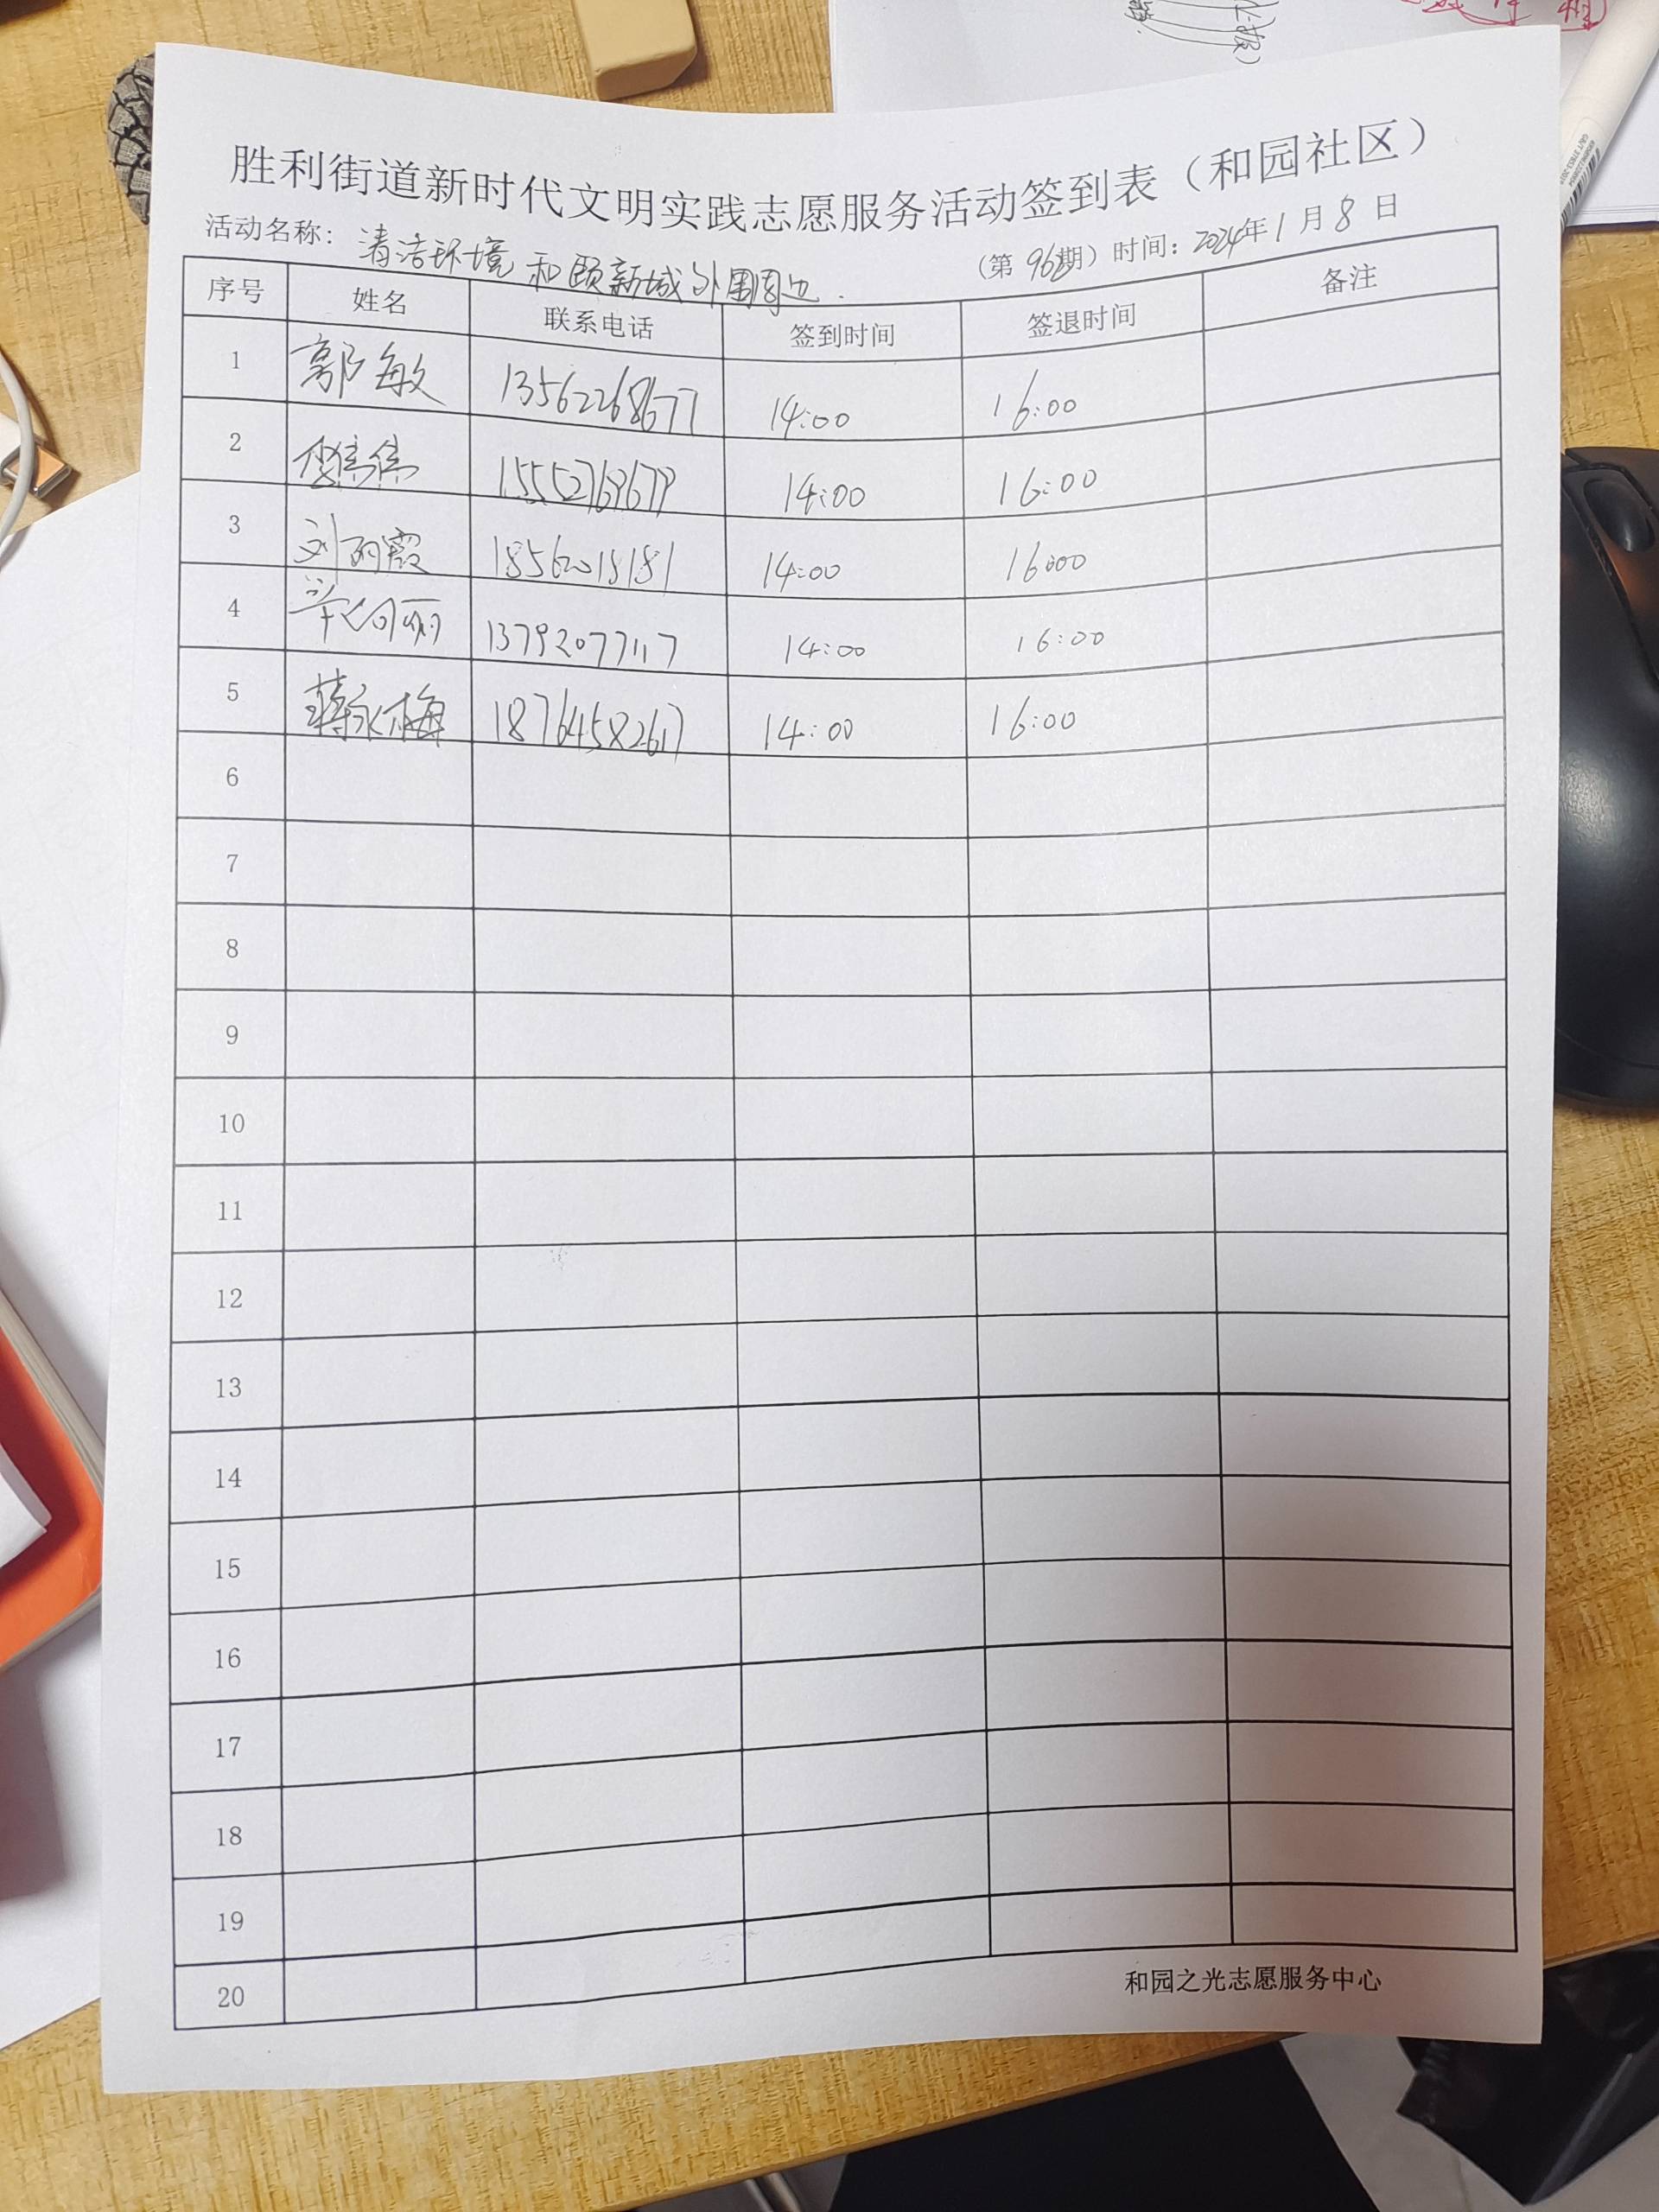 胜利街道新时代文明实践志愿服务活动签到表（和园社区）
活动名称：清洁环境 和颐新城外围周边.
（第 96期）时间：2024年1月8日
序号 姓名 联系电话 签到时间 签退时间 备注
1 郭敏 13562268677 14:00 16:00
2 伟伟 15552769679 14:00 16:00
3 刘丽霞 14:00 16:00
4 丽 13792077117 14:00 16:00
5 蒋永梅 18764582617 14:00 16:00
6
7
8
9
10
11
12
13
14
15
16
17
18
19
20
和园之光志愿服务中心